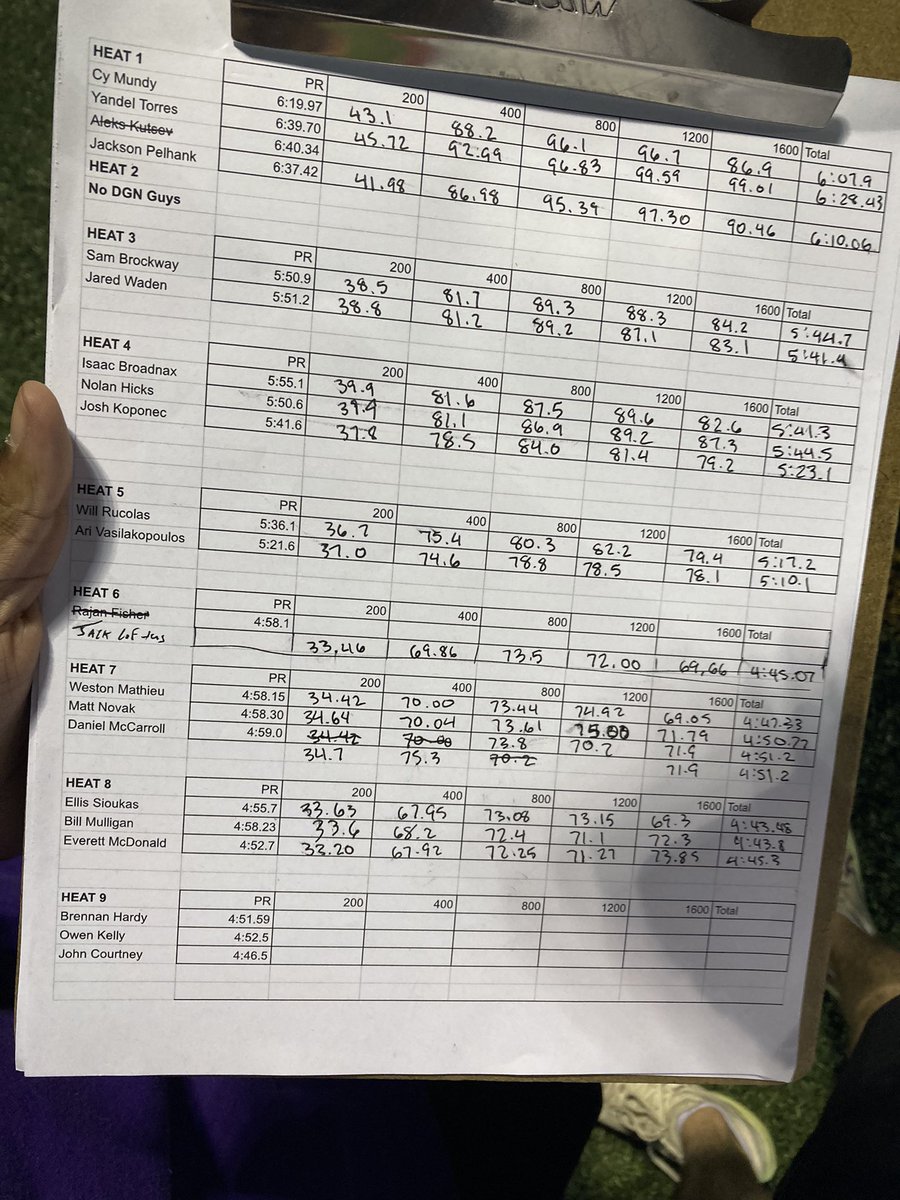 HEAT 1
PR 200 400 800 1200 1600 Total
Cy Mundy 6:19.97 43.1 88.2 96.1 96.7 86.9 6:07.9
Yandel Torres 6:39.70 45.72 92.99 96.83 99.59 99.01 6:28.43
Aleks Kutsev 6:40.34
Jackson Pelhank 6:37.42 41.98 86.98 95.34 97.30 90.46 6:10.06
HEAT 2
No DGN Guys
HEAT 3
PR 200 400 800 1200 1600 Total
Sam Brockway 5:50.9 38.5 81.7 89.3 88.3 84.2 5:44.7
Jared Waden 5:51.2 38.8 81.2 89.2 87.1 83.1 5:41.4
HEAT 4
PR 200 400 800 1200 1600 Total
Isaac Broadnax 5:55.1 39.9 81.6 87.5 89.6 82.6 5:41.3
Nolan Hicks 5:50.6 39.9 81.1 86.9 89.2 87.3 5:44.5
Josh Koponec 5:41.6 37.8 78.5 84.0 81.4 79.2 5:23.1
HEAT 5
PR 200 400 800 1200 1600 Total
Will Rucolas 5:36.1 36.7 75.4 80.3 82.2 79.4 5:17.2
Ari Vasilakopoulos 5:21.6 37.0 74.6 78.8 78.5 78.1 5:10.1
HEAT 6
PR 200 400 800 1200 1600 Total
Rajan Fisher 4:58.1
33.46 69.86 73.5 72.00 69.66 4:45.07
HEAT 7
PR 200 400 800 1200 1600 Total
Weston Mathieu 4:58.15 34.42 70.00 73.44 74.92 69.05 4:47.33
Matt Novak 4:58.30 34.64 70.04 73.61 75.00 71.79 4:50.77
Daniel McCarroll 4:59.0 34.42 70.00 73.8 70.2 71.9 4:51.2
34.7 75.3 70.2 71.9 4:51.2
HEAT 8
PR 200 400 800 1200 1600 Total
Ellis Sioukas 4:55.7 33.63 67.95 73.08 73.15 69.3 4:43.48
Bill Mulligan 4:58.23 33.6 68.2 72.4 71.1 72.3 4:43.8
Everett McDonald 4:52.7 33.20 67.92 72.25 71.27 73.85 4:45.3
HEAT 9
PR 200 400 800 1200 1600 Total
Brennan Hardy 4:51.59
Owen Kelly 4:52.5
John Courtney 4:46.5